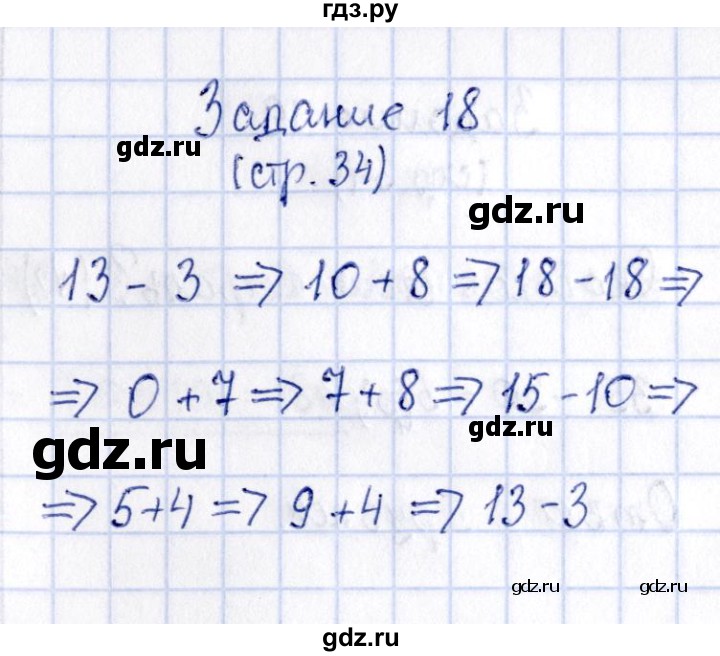 гдз.ру
Задание 18
gdz.ru
(стр. 34)
gdz.ru
13 - 3 => 10 + 8 => 18 - 18 =>
=> 0 + 7 => 7 + 8 => 15 - 10 =>
gdz.ru
gdz.ru
=> 5 + 4 => 9 + 4 => 13 - 3
gdz.ru
gdz.ru
gdz.ru